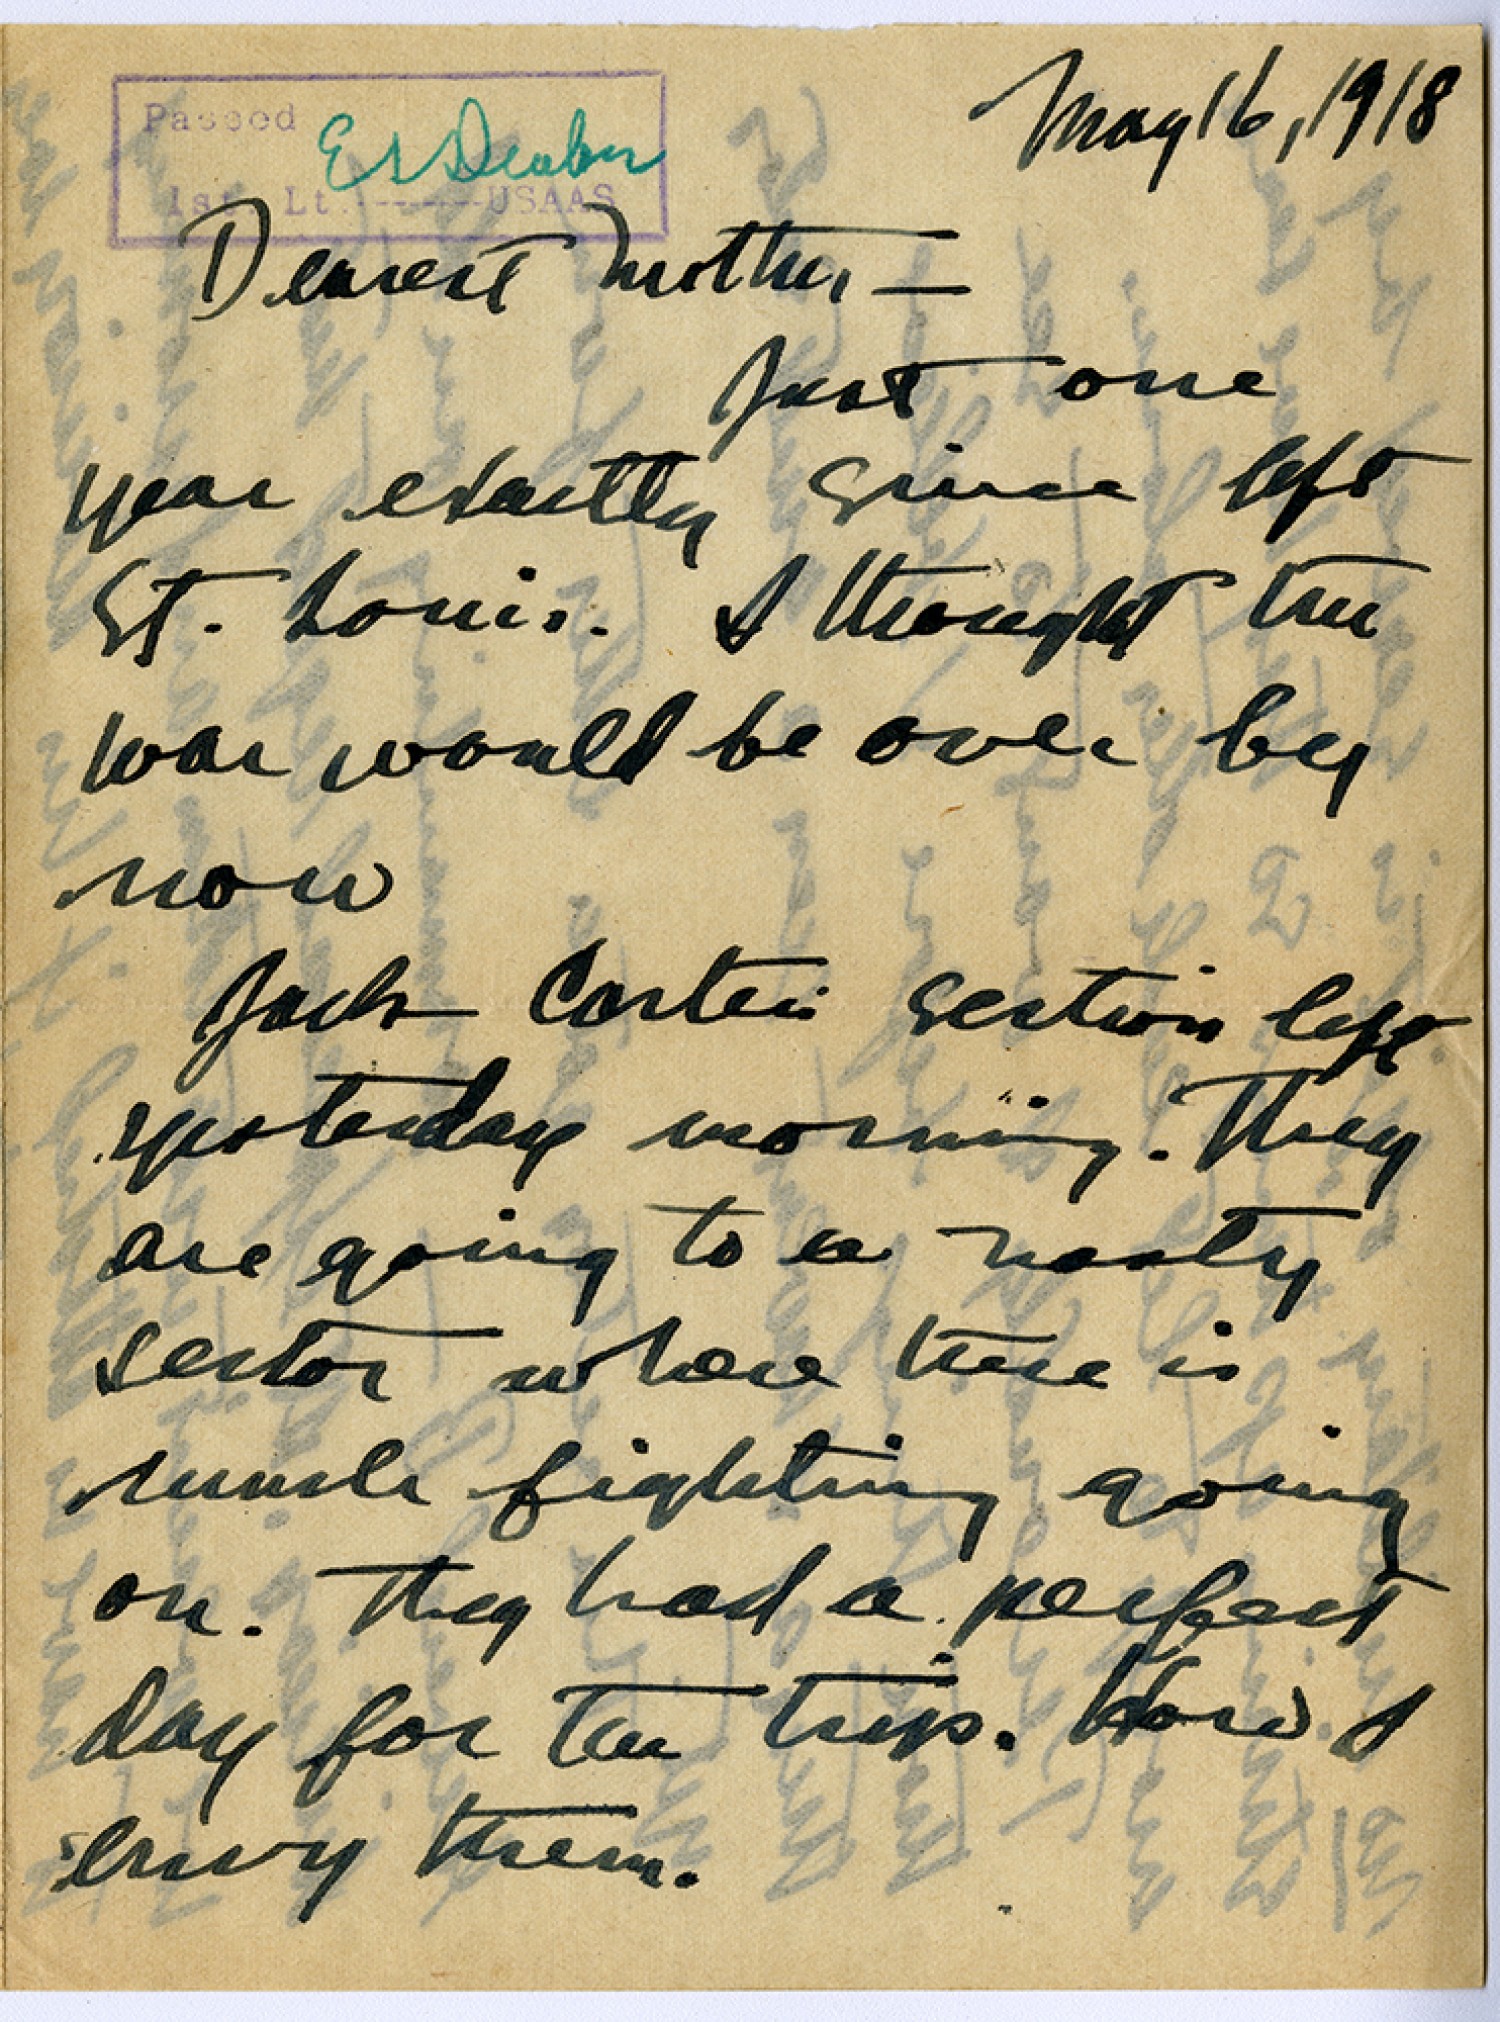 May 16, 1918
Passed
1st. Lt.-------USAAS
Dearest Mother, —
Just one
year exactly since left
St. Louis. I thought the
war would be over by
now
Jack section left
yesterday morning. They
are going to a nasty
sector where there is
much fighting going
on. They had a perfect
day for the trip. How I
envy them.